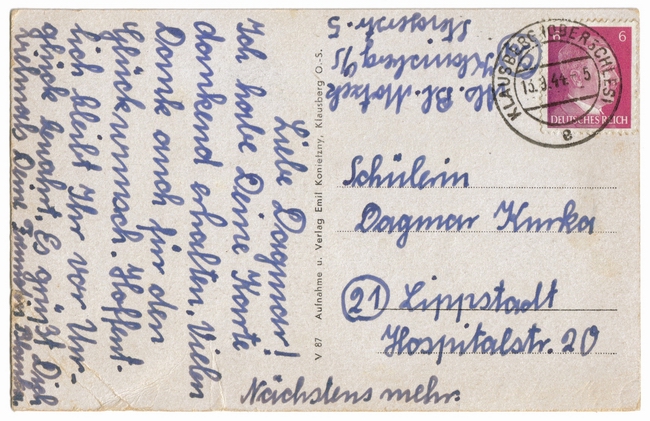 Liebe Dagmar!
Ich habe Deine Karte
dankend erhalten. Vielen
Dank auch für den
Glückwunsch. Hoffent-
lich bleibt Ihr vor Un-
glück bewahrt. Es grüßt Dich
vielmals Deine
Nächstens mehr.
V 87 Aufnahme u. Verlag Emil Konietzny, Klausberg O.-S.
Klausberg 9/S
5
KLAUSBERG (OBERSCHLES)
13.9.44
e
6
DEUTSCHES REICH
Schülerin
Dagmar Kurka
21 Lippstadt
Hospitalstr. 20